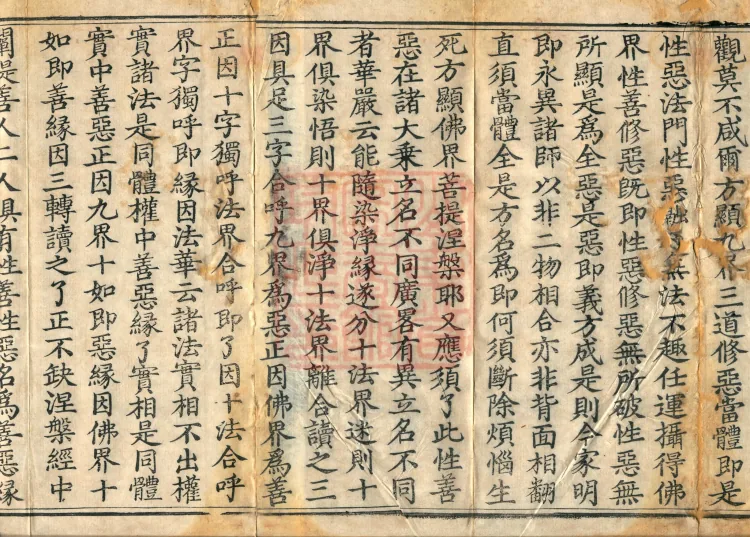 觀莫不咸爾方顯九界三道修惡當體即是
性惡法門性惡融通無法不趣任運攝得佛
界性善修惡旣即性惡修惡無所破性惡無
所顯是爲全惡是惡即義方成是則今家明
即永異諸師以非二物相合亦非背面相翻
直須當體全是方名爲即何須斷除煩惱生
死方顯佛界菩提涅槃耶又應須了此性善
惡在諸大乘立名不同廣畧有異立名不同
者華嚴云能隨染淨緣遂分十法界迷則十
界俱染悟則十界俱淨十法界離合讀之三
因具足三字合呼九界爲惡正因佛界爲善
正因十字獨呼法界合呼即了因十法合呼
界字獨呼即緣因法華云諸法實相不出權
實諸法是同體權中善惡緣了實相是同體
實中善惡正因九界十如即惡緣因佛界十
如即善緣因三轉讀之了正不缺涅槃經中
闡提善人二人俱有性善性惡名爲善惡緣